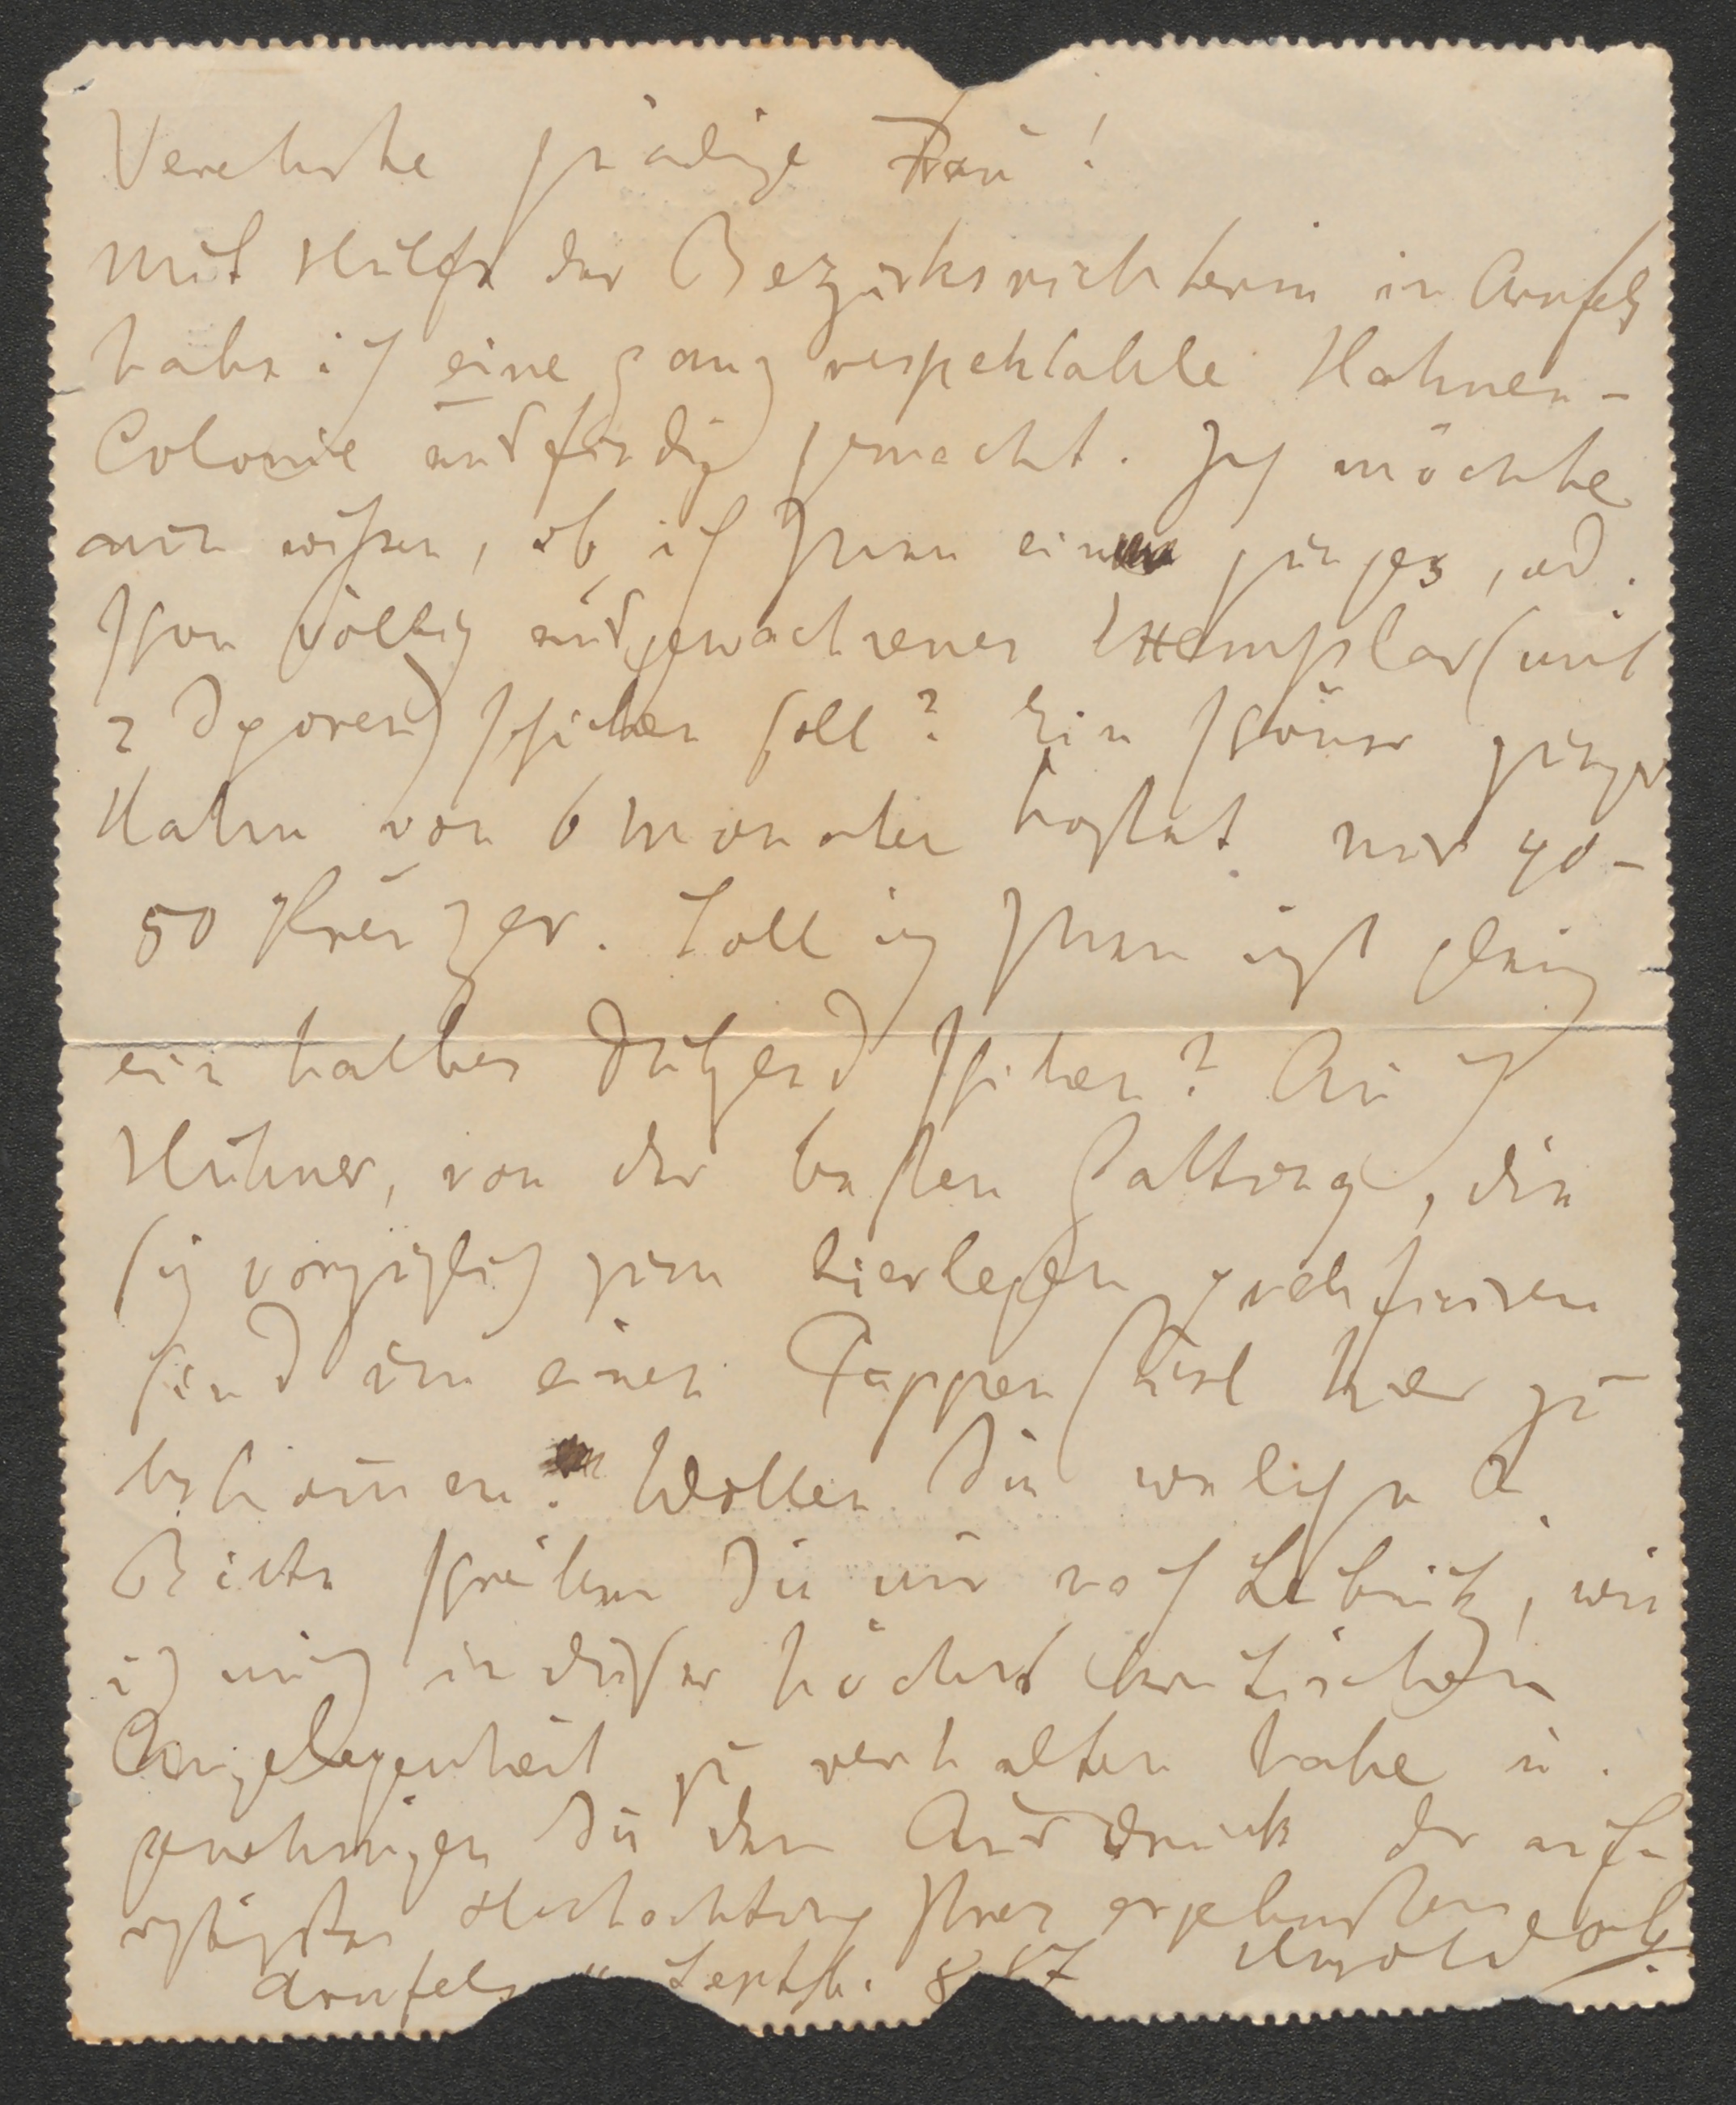 Verehrte gnädige Frau!
Mit Hülfe der Bezirksrichterin in Arnfels
habe ich eine ganz respektable Hahnen-
Colonie ausfindig gemacht. Ich möchte
nun wissen, ob ich Ihnen ein junges, od.
schon völlig ausgewachsenes Exemplar (mit
2 Sporen) schicken soll? Ein schöner junger
Hahn von 6 Monaten kostet nur 40-
50 Kreuzer. Soll ich Ihnen igst gleich
ein halbes Dutzend schicken? Auch
Hühner, von der besten Gattung, die
sich vorzüglich zum Eierlegen
sind um einen Pappenstiel hier zu
bekom̅en. Wollen Sie welche?
Bitte schreiben Sie mir nach Leibnitz, wie
ich mich in dieser höchst kritischen
Angelegenheit zu verhalten habe u.
genehmigen Sie den Ausdruck der auf-
richtigsten Hochachtung Ihres ergebensten
Arnfels Septb. 887 HugoWolf.